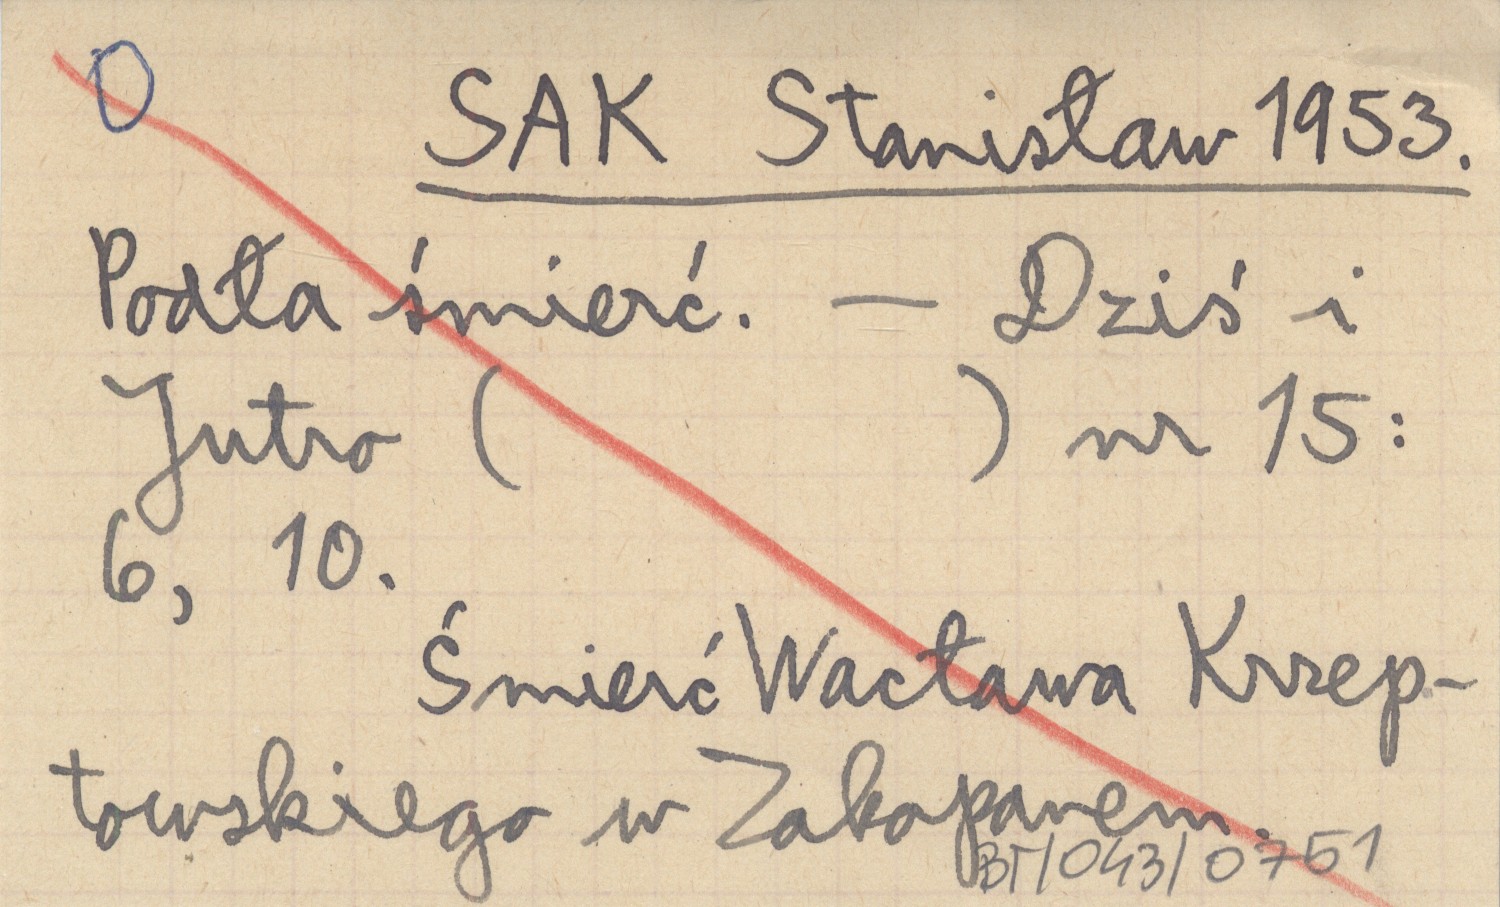 O
SAK Stanisław 1953.
Podła śmierć. — Dziś i
Jutro ( ) nr 15:
6, 10.
Śmierć Wacława Krzep-
towskiego w Zakopanem.
BT/043/0751